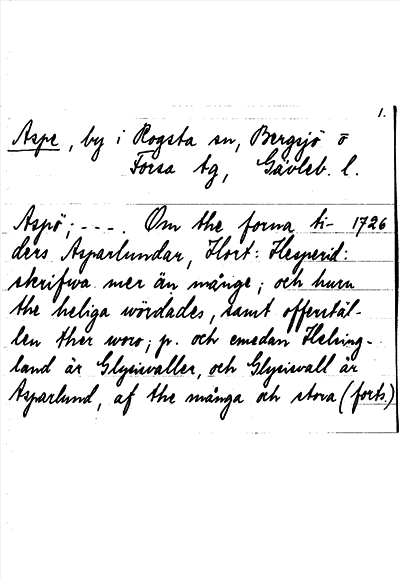 1.
Aspe, by i Rogsta sn, Bergsjö o
Forsa tg, Gävleb. l.
Aspö; ---. Om the forna ti- 1726
ders Asparlundar, Hort: Hesperid:
skrifwa mer än månge; och huru
the heliga wördades, samt offerstäl-
len ther woro; p. och emedan Helsing-
land är Glysiswaller, och Glysiswall är
Asparlund, af the många och stora (forts.)